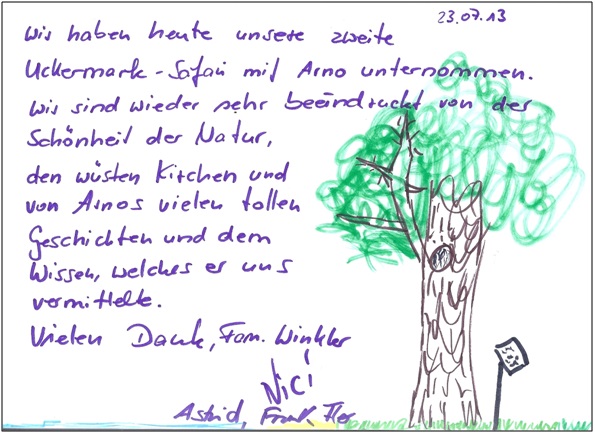 23.07.13
Wir haben heute unsere zweite
Uckermark-Safari mit Arno unternommen.
Wir sind wieder sehr beeindruckt von der
Schönheit der Natur,
den wüsten Kirchen und
von Arnos vielen tollen
Geschichten und dem
Wissen, welches er uns
vermittelte.
Vielen Dank, Fam. Winkler
Nici
Astrid, Frank